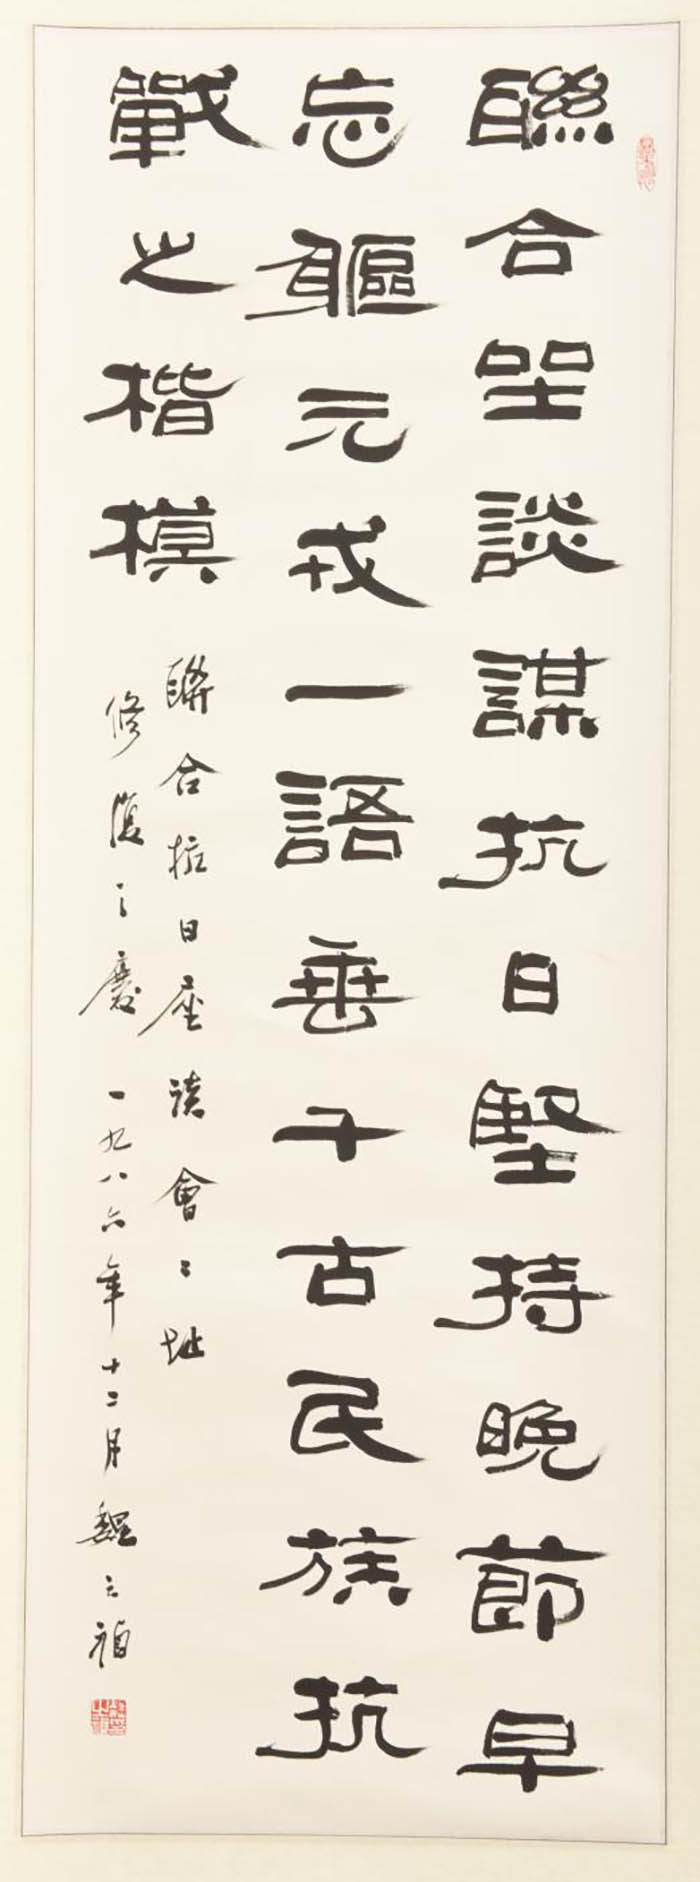 聯合坐談謀抗日堅持晚節早
忘軀元戎一語垂千古民族抗
戰之楷模
聯合抗日座談會之址
修復之慶 一九八六年十二月 魏之禎